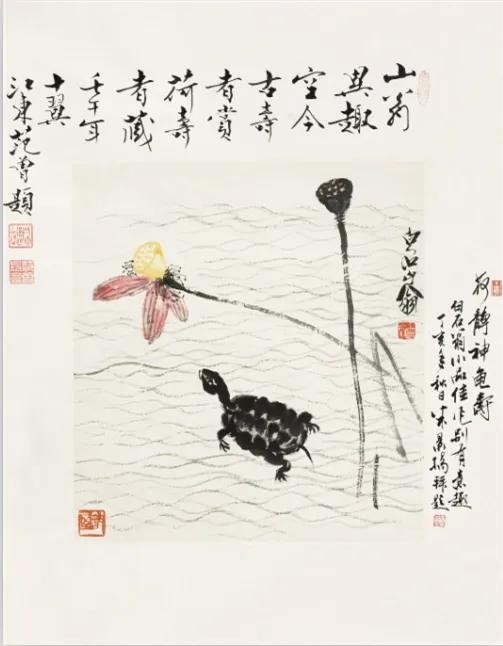 山翁
異趣
空今
古壽
者賞
荷壽
者藏
壬午年
十翼
江東范曾題
白石山翁
荷静神龜壽
白石翁小品佳作別有意趣
丁亥 秋日米景揚 題